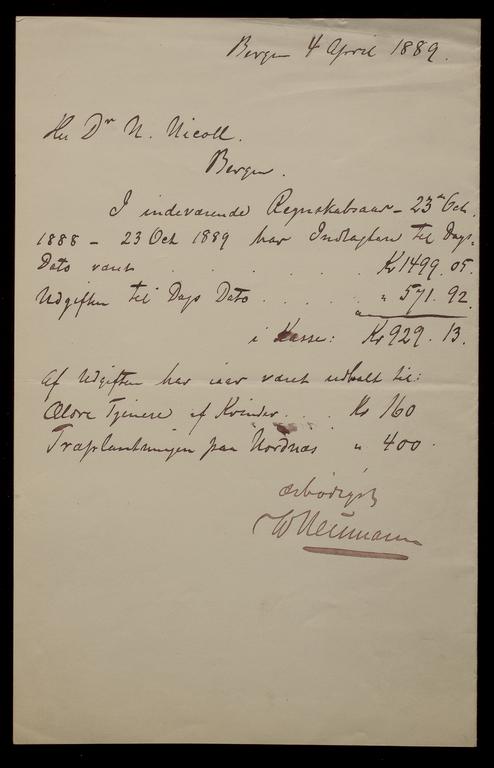 Bergen 4 April 1889.
Hr Dr N. Nicoll.
Bergen.
I indeværende Regnskabsaar – 23de Oct.
1888 – 23 Oct 1889 har Indtægten til Dags-
Dato været . . . . . . Kr 1499. 05.
Udgiften til Dags Dato . . . . . „ 571. 92.
i Kasse: Kr 929. 13.
Af Udgiften har iaar været udbetalt til:
Ældre Tjenere af Kvinder . . . Kr 160
Træplantningen paa Nordnæs „ 400.
ærbødigst
W Neumann